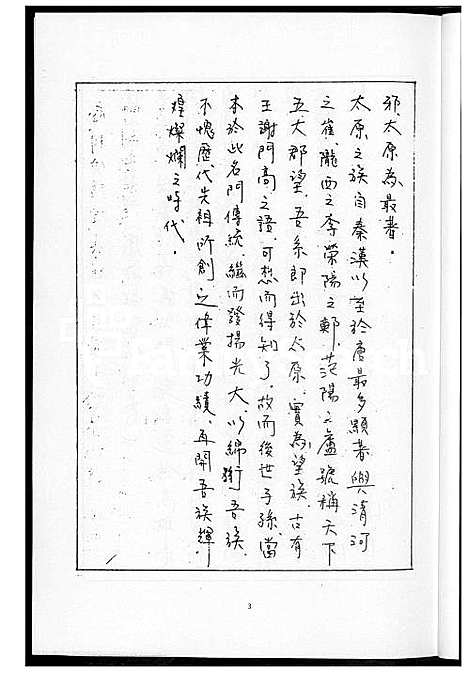 邪太原為最著。
太原之族自秦漢以至於唐最多顯著與清河
之崔、隴西之李、滎陽之鄭、范陽之盧號稱天下
五大郡望、吾系即出於太原、實為望族、古有
王謝門高之語、可想而得知了、故而後世子孫、當
本於此名門傳統、繼而發揚光大、以綿衍吾族、
不愧歷代先祖所創之偉業功績、再開吾族輝
煌燦爛之時代。
3